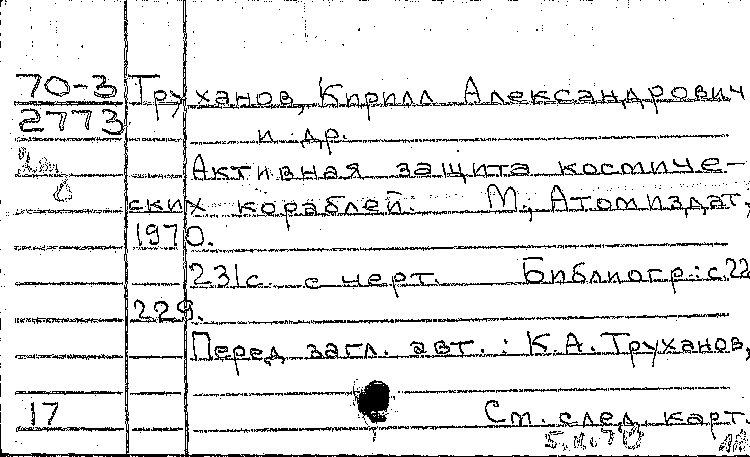 70-3 Труханов, Кирилл Александрович
2773 и др.
Активная защита космиче-
ских кораблей. М., Атомиздат,
1970.
231с. с черт. Библиогр.: с.22
229.
Перед загл. авт.: К.А. Труханов,
17 См. след. карт.